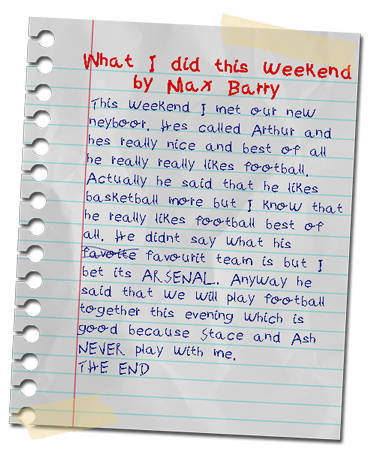 What I did this weekend
by Max Barry
This weekend I met our new
neyboor. Hes called Arthur and
hes really nice and best of all
he really really likes football.
Actually he said that he likes
basketball more but I know that
he really likes football best of
all. He didnt say what his
favoite favourit team is but I
bet its ARSENAL. Anyway he
said that we will play football
together this evening which is
good because Stace and Ash
NEVER play with me.
THE END